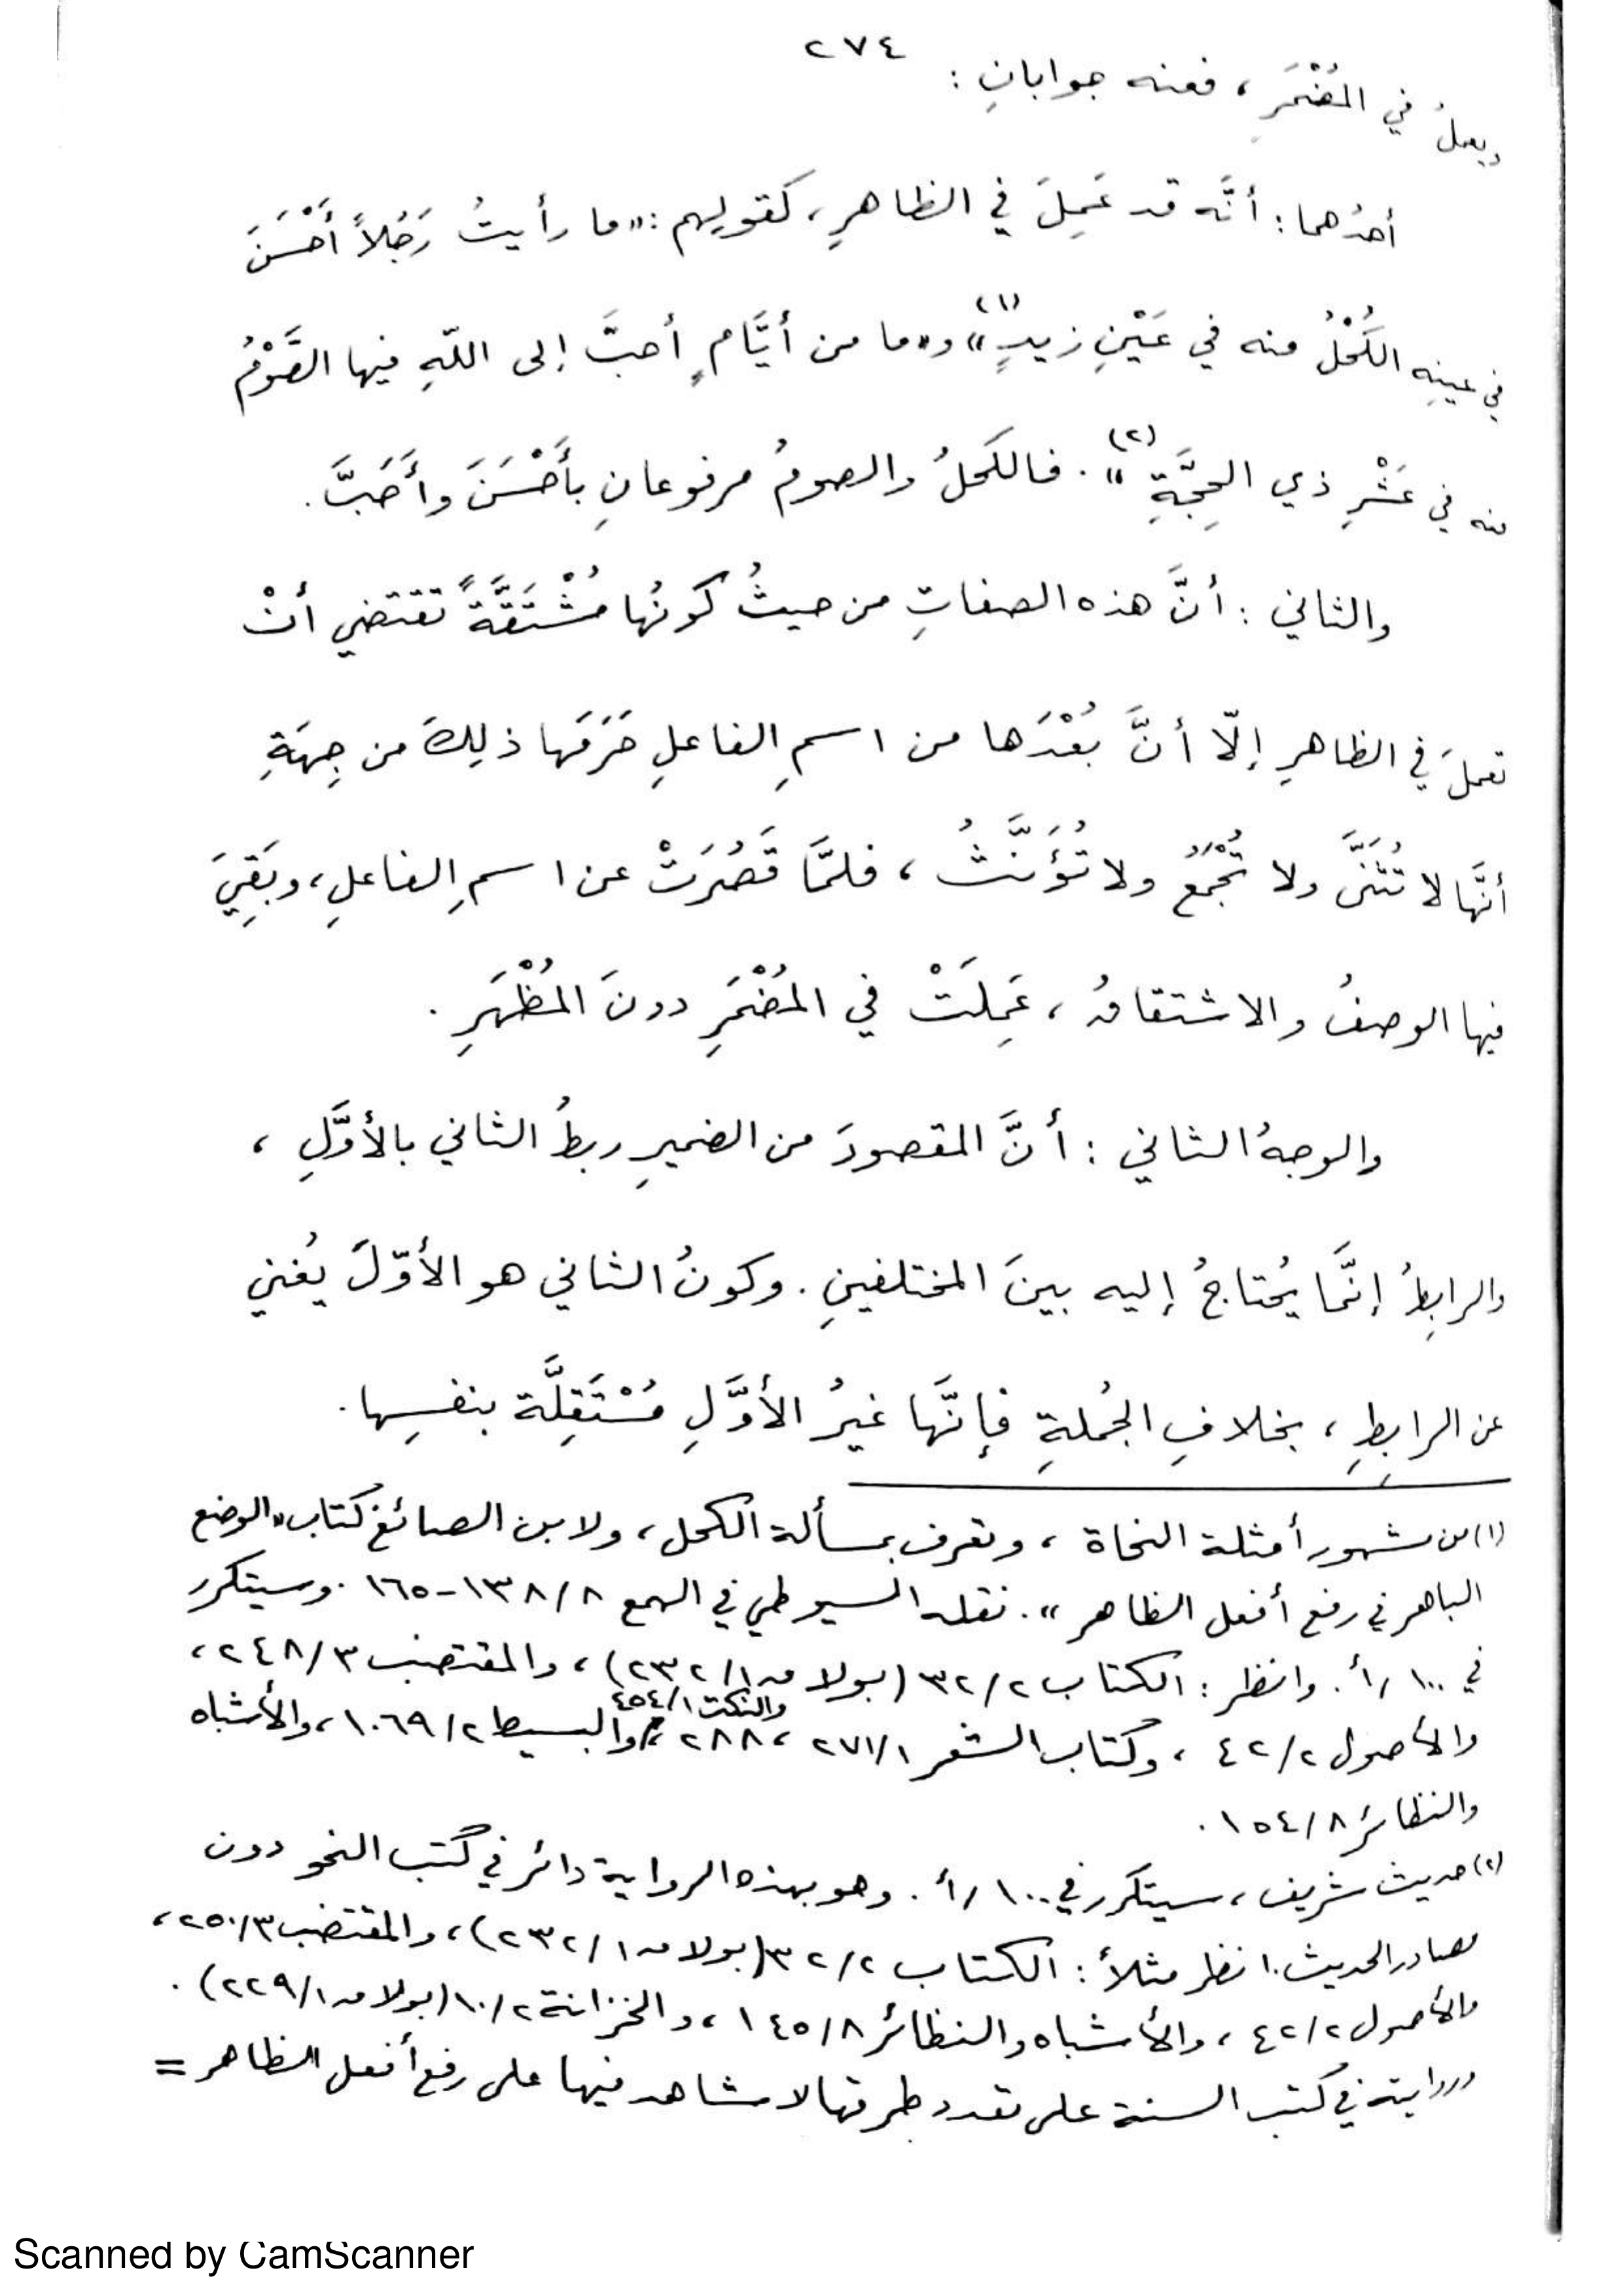 ٢٧٤
ويعملُ في المُضْمَرِ، فعنه جوابانِ :
أحدُهما : أنَّه قد عَمِلَ في الظاهرِ، كقولِهم : «ما رأيتُ رَجُلاً أَحْسَنَ
في عينِه الكُحْلُ منه في عَيْنِ زيدٍ»(١) و«ما من أيَّامٍ أحبَّ إلى اللّهِ فيها الصَّوْمُ
منه في عَشْرِ ذي الحِجَّةِ»(٢) . فالكحلُ والصومُ مرفوعانِ بأَحْسَنَ وأَحَبَّ .
والثاني : أنَّ هذه الصفاتِ من حيثُ كونُها مُشْتَقَّةً تقتضي أنْ
تعملَ في الظاهرِ إلّا أنَّ بُعْدَها من اسمِ الفاعلِ حَرَمَها ذلِكَ من جِهَةِ
أنَّها لا تُثَنَّى ولا تُجْمَعُ ولا تُؤَنَّثُ ، فلمَّا قَصُرَتْ عن اسمِ الفاعلِ، وبَقِيَ
فيها الوصفُ والاشتقاقُ ، عَمِلَتْ في المُضْمَرِ دونَ المُظْهَرِ .
والوجهُ الثاني : أنَّ المقصودَ من الضميرِ ربطُ الثاني بالأوَّلِ ،
والرابِطُ إنَّمَا يُحتاجُ إليه بينَ المختلفينِ . وكونُ الثاني هو الأوّلَ يُغني
عن الرابِطِ ، بخلافِ الجُملةِ فإنَّها غيرُ الأوَّلِ مُسْتَقِلَّة بنفسِها .
(١) من مشهور أمثلة النحاة ، وتعرف بمسألة الكحل ، ولابن الصائغ كتاب «الوضع
الباهر في رفع أفعل الظاهر» . نقله السيوطي في الهمع ٨/ ١٣٨-١٦٥ . وسيتكرر
في ١٠٠/أ . وانظر : الكتاب ٢/ ٣٢ (بولاق ١/ ٢٣٢) ، والمقتضب ٣/ ٢٤٨ ،
والأصول ٢/ ٤٢ ، وكتاب الشعر ١/ ٢٧١ ، ٢٨٨ ، والنكت ١/ ٤٥٤ والبسيط ٢/ ١٠٦٩ ، والأشباه
والنظائر ٨/ ١٥٤ .
(٢) حديث شريف ، سيتكرر في ١٠٠/أ . وهو بهذه الرواية دائر في كتب النحو دون
مصادر الحديث . انظر مثلاً : الكتاب ٢/ ٣٢ (بولاق ١/ ٢٣٢) ، والمقتضب ٣/ ٢٥٠ ،
والأصول ٢/ ٤٢ ، والأشباه والنظائر ٨/ ١٤٥ ، والخزانة ٢/ ١٠ (بولاق ١/ ٢٢٩) .
وروايته في كتب السنة على تعدد طرقها لا شاهد فيها على رفع أفعل الظاهر =
Scanned by CamScanner